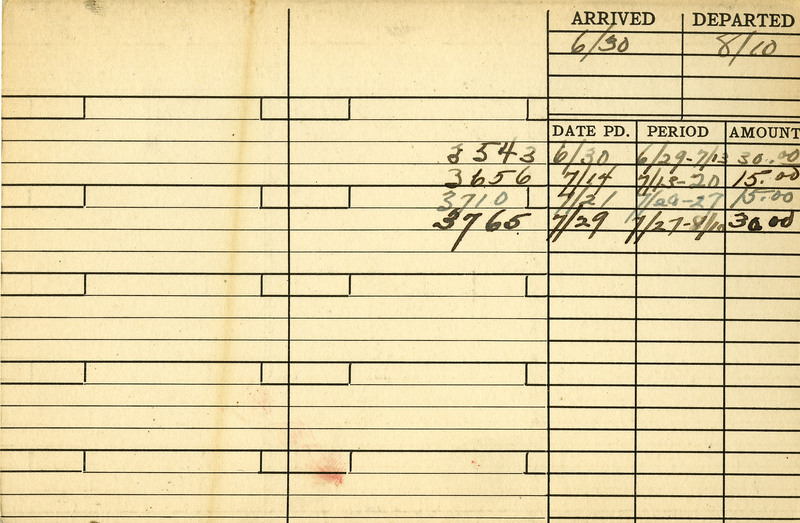 ARRIVED DEPARTED
6/30 8/10
DATE PD. PERIOD AMOUNT
3543 6/30 6/29-7/13 30.00
3656 7/14 7/13-20 15.00
3710 7/21 7/20-27 15.00
3765 7/29 7/27-8/10 30.00